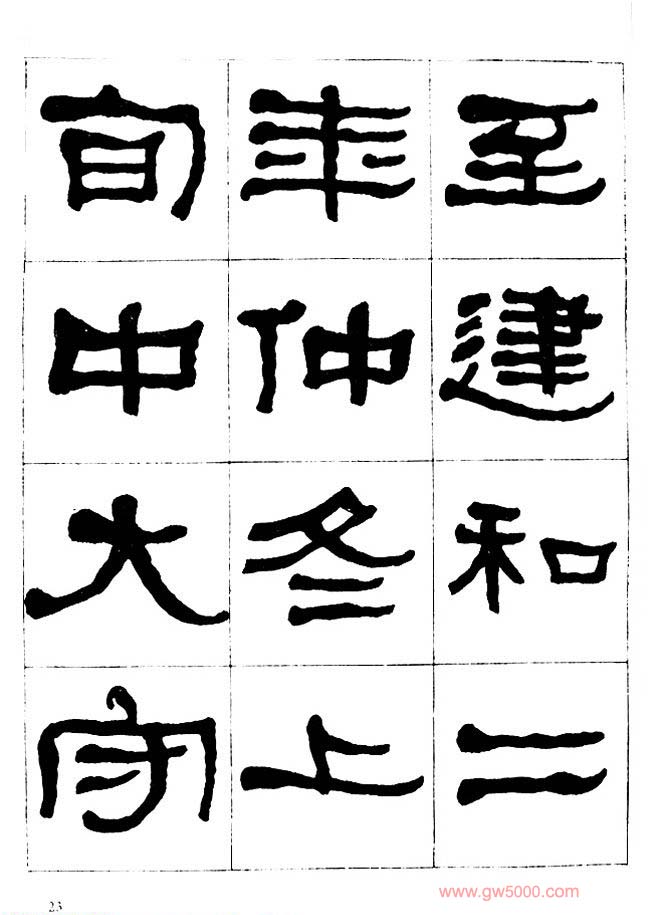 至建和二
年仲冬上
旬中大守
23
www.gw5000.com